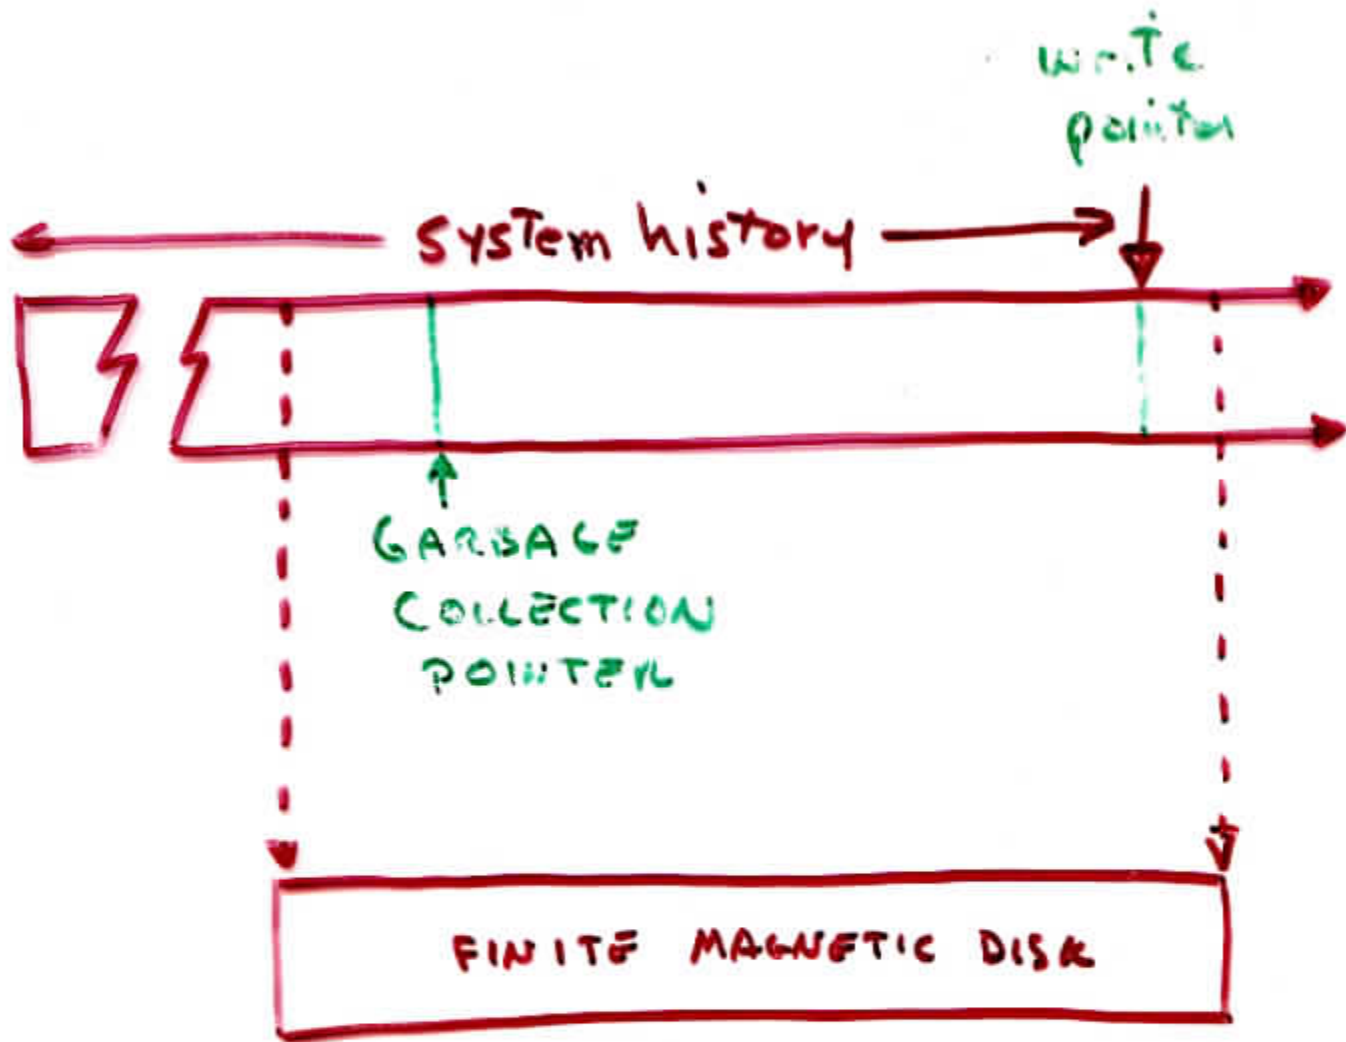 write
pointer
system history
GARBAGE
COLLECTION
POINTER
FINITE MAGNETIC DISK